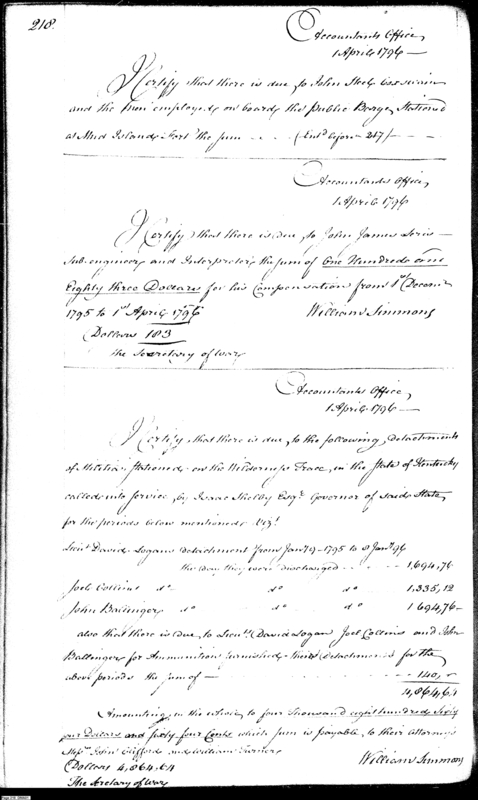 218.
Accountants Office,
1 April 1796
I Certify that there is due to John Steel Cosswain
and the men employed on board the Public Barge Stationed
at Mud Island Fort the sum - - - (Ent'd before 247) - - -
Accountants Office,
1 April 1796
I Certify that there is due to John James
Sub-engineer and Interpreter the sum of One Hundred and
Eighty three Dollars for his Compensation from 1st Decemr
1795 to 1st April 1796
William Simmons
Dollars 183
The Secretary of War
Accountants Office
1 April 1796
I Certify that there is due to the following detachments
of Militia Stationed on the Wilderness Trace, in the State of Kentucky
called into service, by Isaac Shelby Esqr. Governor of said State,
for the periods below mentioned Vizt
Lieut David Logans detachment from Jany 9 - 1795 to 8 Jany 96
the day they were discharged - - - - 1,694,76
Joel Collins do do do - - 1,335,12
John Ballinger do do do - - 1 694,76
also that there is due to Lieuts David Logan Joel Collins and John
Ballinger for Ammunition furnished their Detachments for the
above periods the sum of - - - 140,-
4,864,64
Amounting in the whole to four thousand eight hundred sixty
four Dollars and sixty four Cents which sum is payable, to their attorneys
Messrs John Clifford and William
William Simmons
Dollars 4,864,64
The Secretary of War